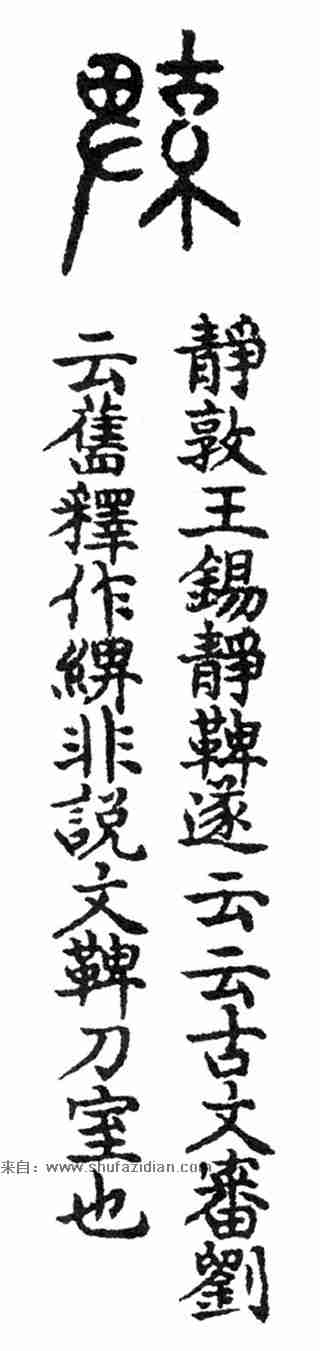 靜敦王錫靜鞞遂云云古文審劉
云舊釋作綼非說文鞞刀室也
来自：www.shufazidian.com